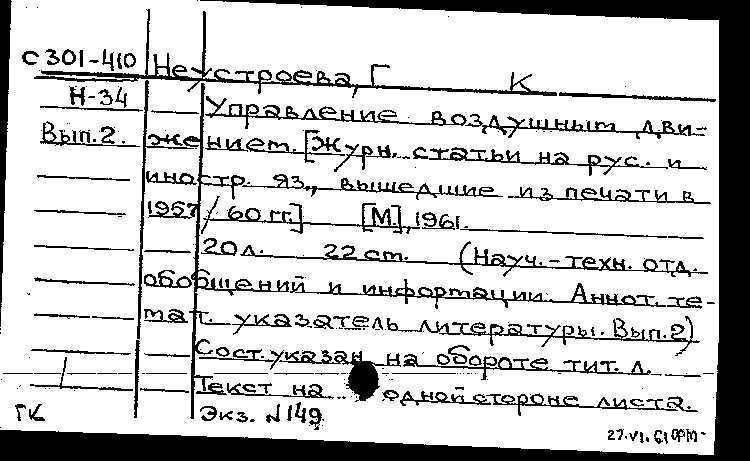 С301-410 Неустроева, Г К
Н-34 Управление воздушным дви-
Вып.2. жением. [Журн. статьи на рус. и
иностр. яз., вышедшие из печати в
1957/60 гг.] [М.], 1961.
20л. 22 cm. (Науч.-техн. отд.
обобщений и информации. Аннот. те-
мат. указатель литературы. Вып.2)
Сост. указан на обороте тит. л.
Текст на одной стороне листа.
ГК Экз. №149
27.VI.61